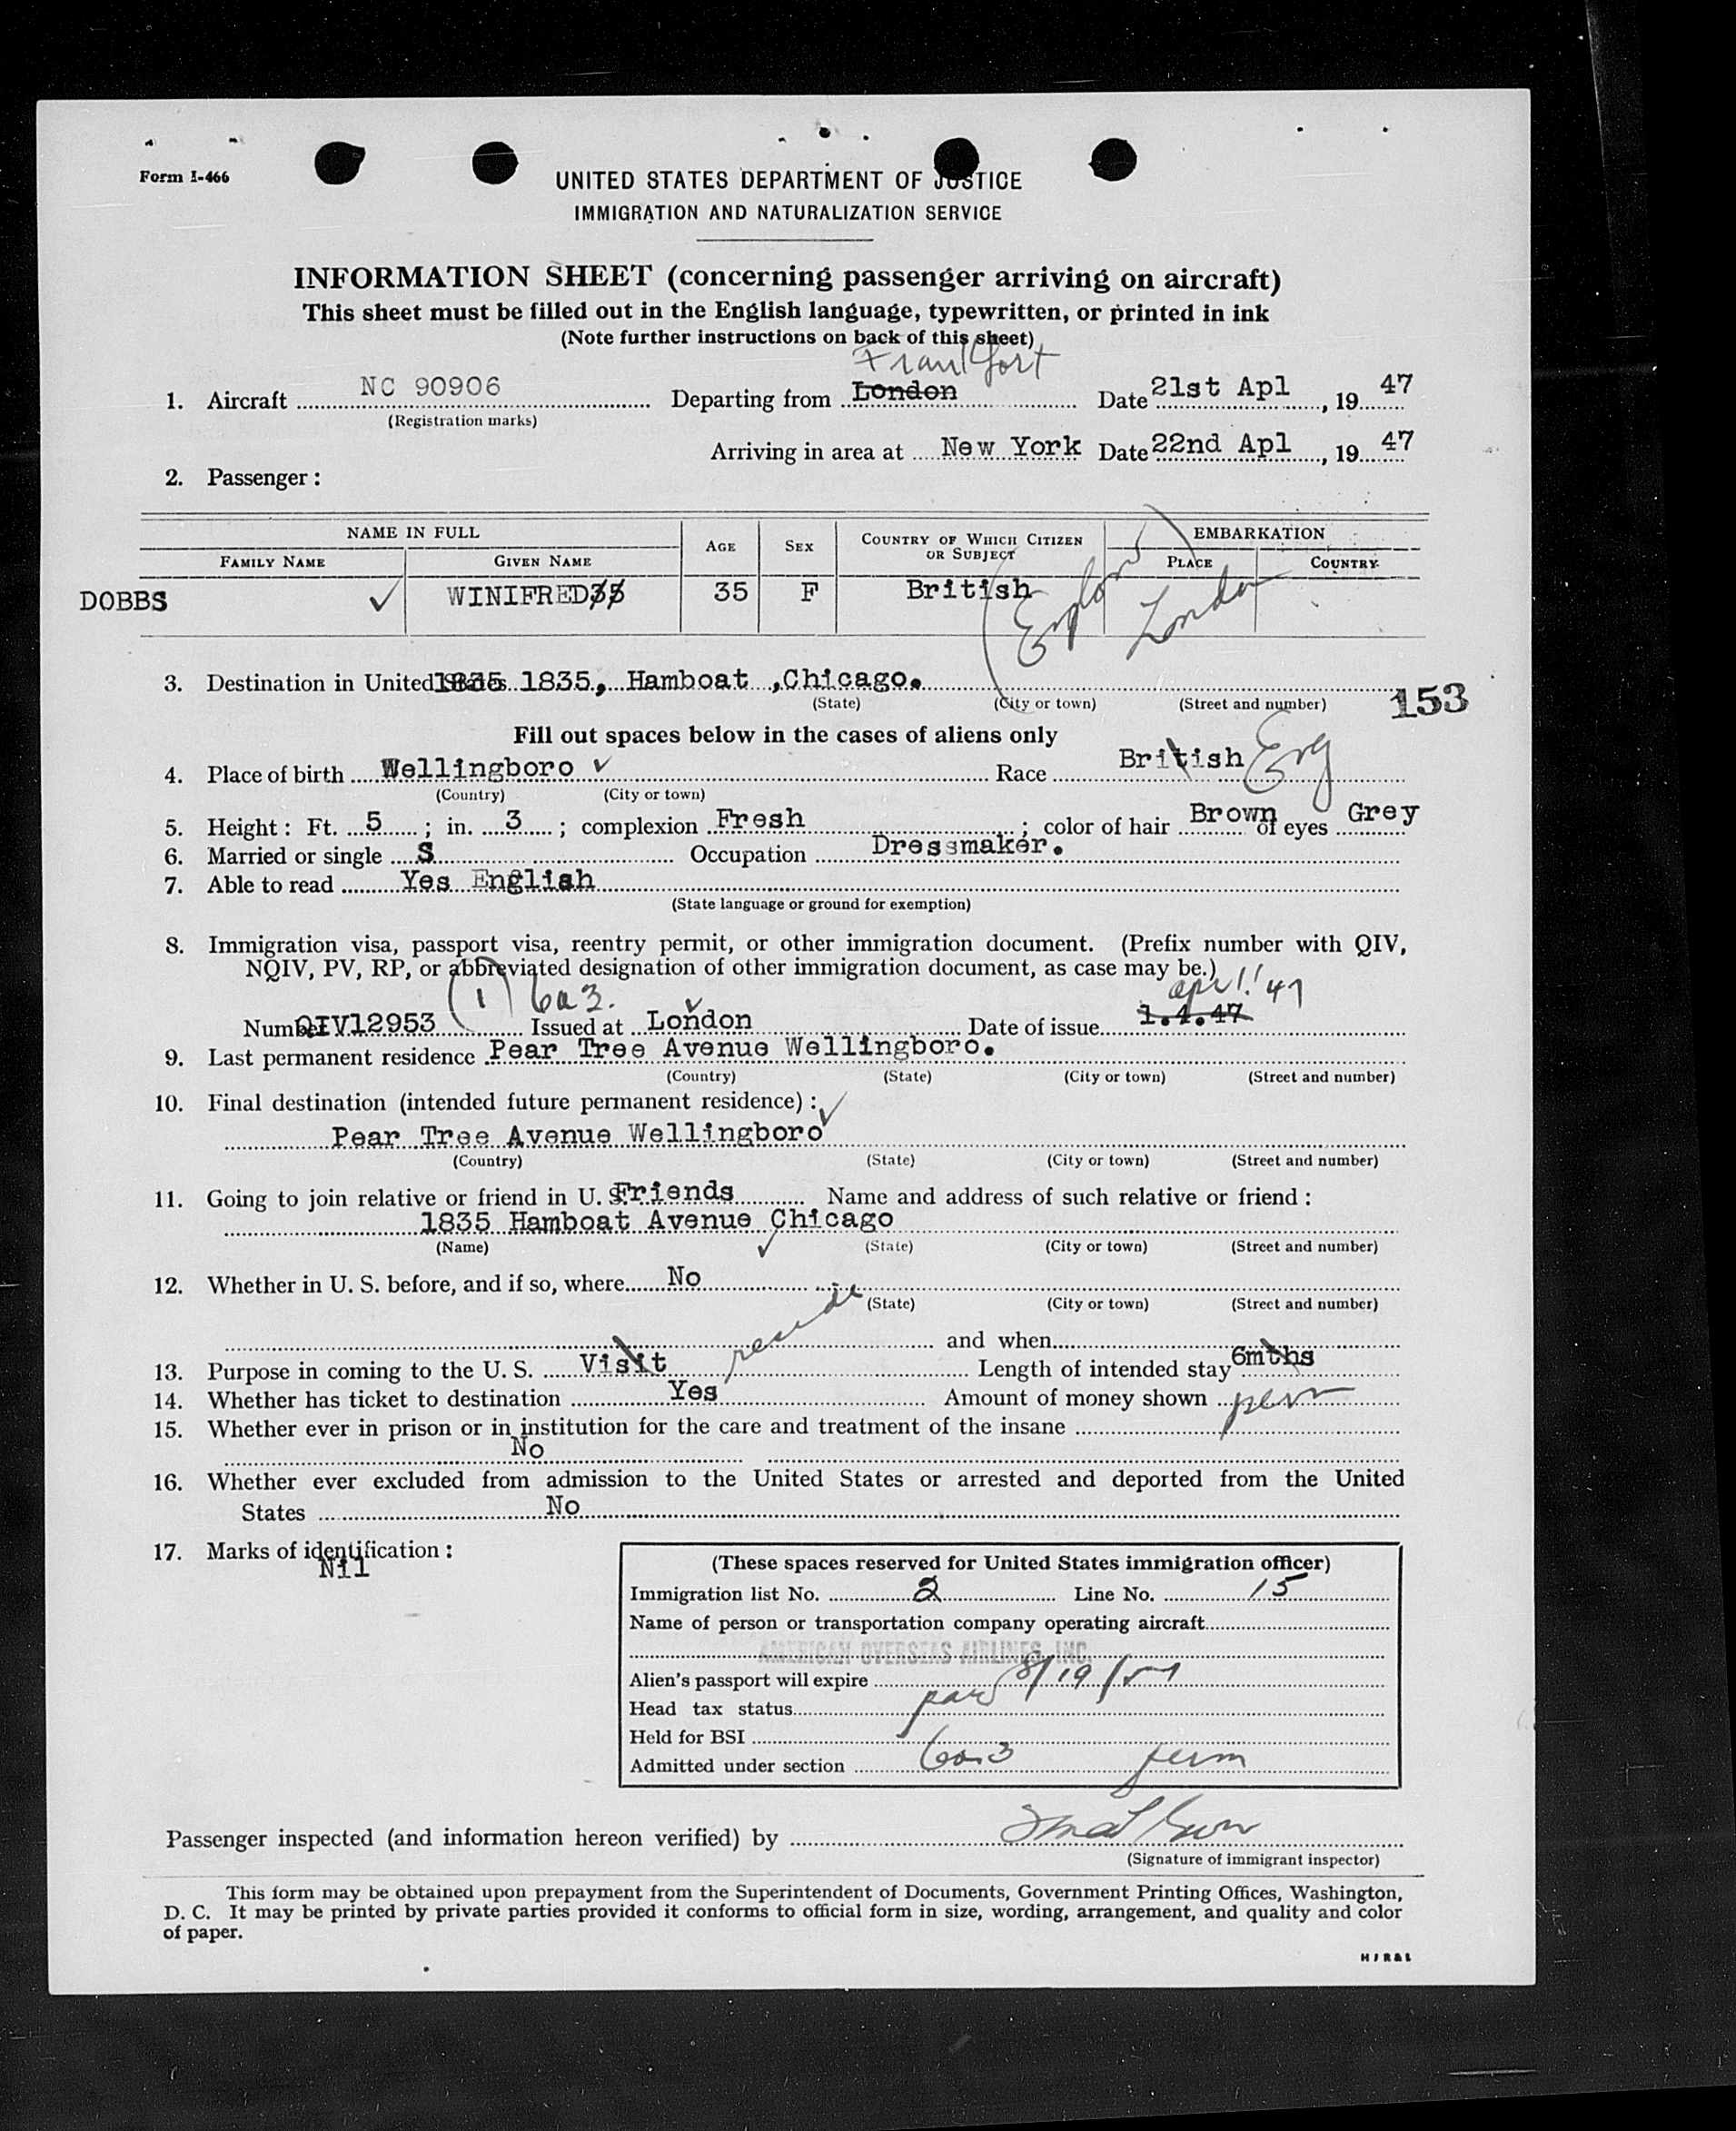 Form I-466
UNITED STATES DEPARTMENT OF JUSTICE
IMMIGRATION AND NATURALIZATION SERVICE
INFORMATION SHEET (concerning passenger arriving on aircraft)
This sheet must be filled out in the English language, typewritten, or printed in ink
(Note further instructions on back of this sheet)
Frankfort
1. Aircraft NC 90906 Departing from London Date 21st Apl, 19 47
(Registration marks)
Arriving in area at New York Date 22nd Apl, 19 47
2. Passenger:
NAME IN FULL AGE SEX COUNTRY OF WHICH CITIZEN OR SUBJECT EMBARKATION
FAMILY NAME GIVEN NAME PLACE COUNTRY
DOBBS ✓ WINIFRED 35 F British England London
3. Destination in United States 1835 1835, Hamboat ,Chicago.
(State) (City or town) (Street and number) 153
Fill out spaces below in the cases of aliens only
4. Place of birth Wellingboro ✓ Race British Eng
(Country) (City or town)
5. Height: Ft. 5; in. 3; complexion Fresh; color of hair Brown of eyes Grey
6. Married or single S Occupation Dressmaker.
7. Able to read Yes English
(State language or ground for exemption)
8. Immigration visa, passport visa, reentry permit, or other immigration document. (Prefix number with QIV,
NQIV, PV, RP, or abbreviated designation of other immigration document, as case may be.)
(1) 6a3. apr 1 '47
Number QIV12953 Issued at London ✓ Date of issue 1.4.47
9. Last permanent residence Pear Tree Avenue Wellingboro.
(Country) (State) (City or town) (Street and number)
10. Final destination (intended future permanent residence): ✓
Pear Tree Avenue Wellingboro
(Country) (State) (City or town) (Street and number)
11. Going to join relative or friend in U. S. Friends Name and address of such relative or friend:
1835 Hamboat Avenue Chicago
(Name) ✓ (State) (City or town) (Street and number)
12. Whether in U. S. before, and if so, where No
(State) (City or town) (Street and number)
and when
13. Purpose in coming to the U. S. Visit reside Length of intended stay 6mths
14. Whether has ticket to destination Yes Amount of money shown perm
15. Whether ever in prison or in institution for the care and treatment of the insane
No
16. Whether ever excluded from admission to the United States or arrested and deported from the United
States No
17. Marks of identification:
Nil
(These spaces reserved for United States immigration officer)
Immigration list No. 2 Line No. 15
Name of person or transportation company operating aircraft
AMERICAN OVERSEAS AIRLINES, INC.
Alien's passport will expire 8/19/51
Head tax status paid
Held for BSI
Admitted under section 6a3 perm
Passenger inspected (and information hereon verified) by
(Signature of immigrant inspector)
This form may be obtained upon prepayment from the Superintendent of Documents, Government Printing Offices, Washington,
D. C. It may be printed by private parties provided it conforms to official form in size, wording, arrangement, and quality and color
of paper.